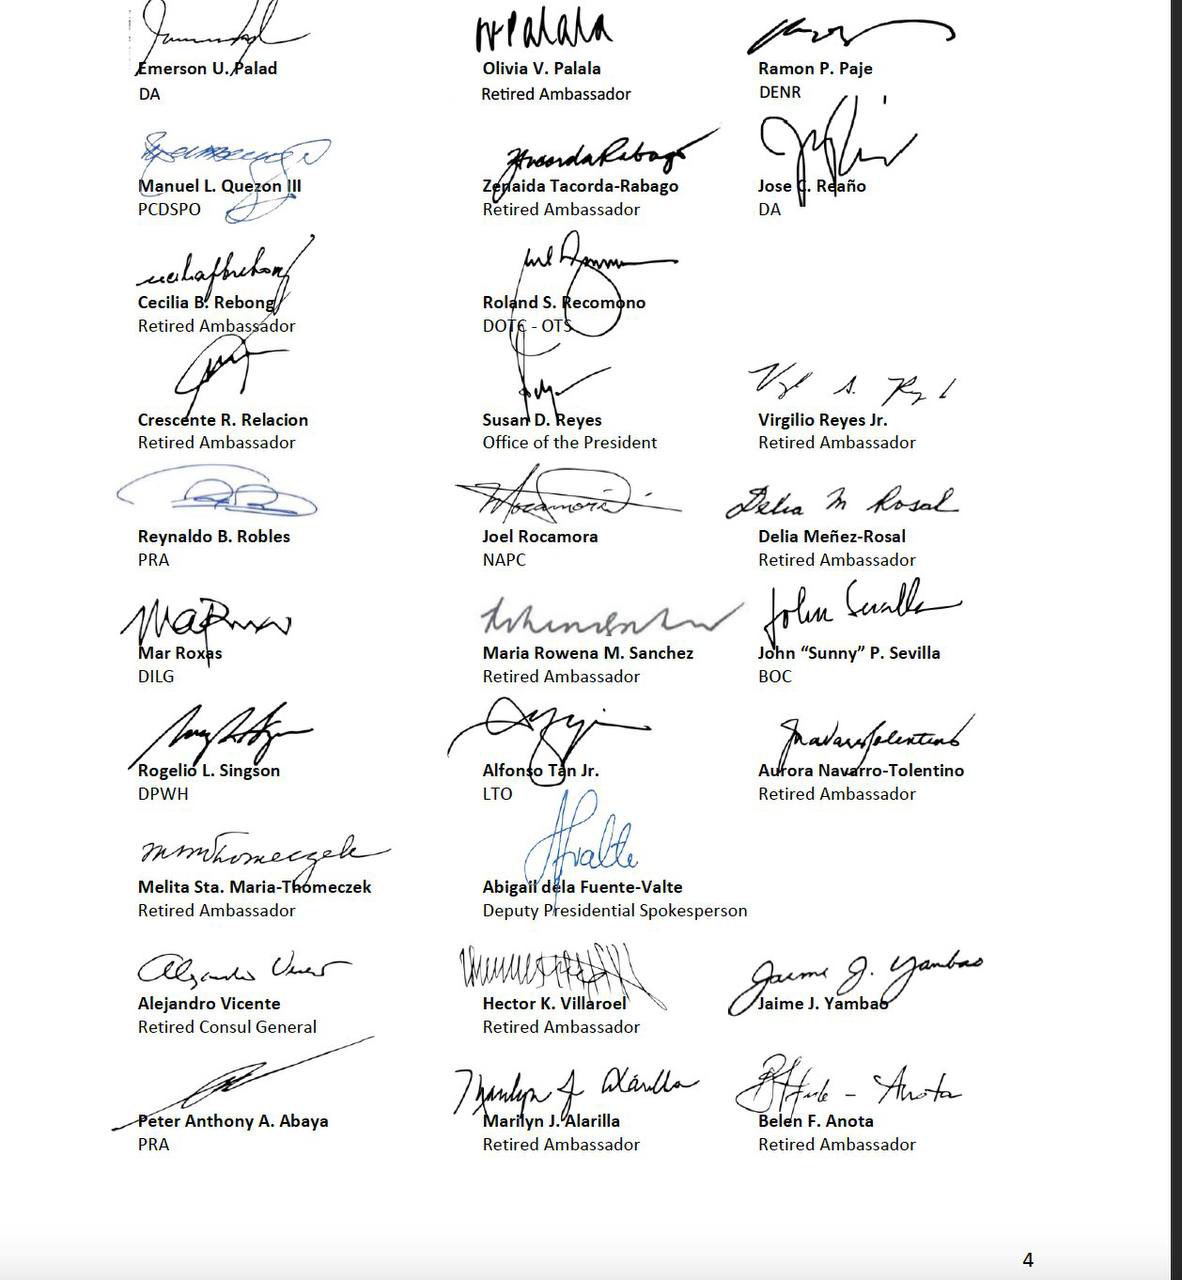 Emerson U. Palad
DA
Olivia V. Palala
Retired Ambassador
Ramon P. Paje
DENR
Manuel L. Quezon III
PCDSPO
Zenaida Tacorda-Rabago
Retired Ambassador
Jose C. Reaño
DA
Cecilia B. Rebong
Retired Ambassador
Roland S. Recomono
DOTC - OTS
Crescente R. Relacion
Retired Ambassador
Susan D. Reyes
Office of the President
Virgilio Reyes Jr.
Retired Ambassador
Reynaldo B. Robles
PRA
Joel Rocamora
NAPC
Delia M Rosal
Delia Meñez-Rosal
Retired Ambassador
Mar Roxas
DILG
Maria Rowena M. Sanchez
Retired Ambassador
John Sevilla
John “Sunny” P. Sevilla
BOC
Rogelio L. Singson
DPWH
Alfonso Tan Jr.
LTO
Aurora Navarro-Tolentino
Retired Ambassador
Melita Sta. Maria-Thomeczek
Retired Ambassador
Abigail dela Fuente-Valte
Deputy Presidential Spokesperson
Alejandro Vicente
Retired Consul General
Hector K. Villaroel
Retired Ambassador
Jaime J. Yambao
Jaime J. Yambao
Peter Anthony A. Abaya
PRA
Marilyn J Alarilla
Marilyn J. Alarilla
Retired Ambassador
Belen F. Anota
Retired Ambassador
4